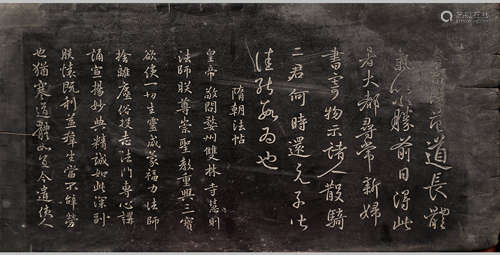 道長體
勝前日得此
者大都尋常新婦
書寄物示諸人散騎
二君何時還兄子以
佳能數為也
隋朝法帖
皇帝敬問婺州雙林寺慧則
法師朕尊崇聖教重興三寶
欲使一切生靈咸蒙福力法師
捨離塵俗投志法門專心講
誦宣揚妙典精誠如此深到
朕懷既利益群生當不辭勞
也猶寒道體如宜今遣使人